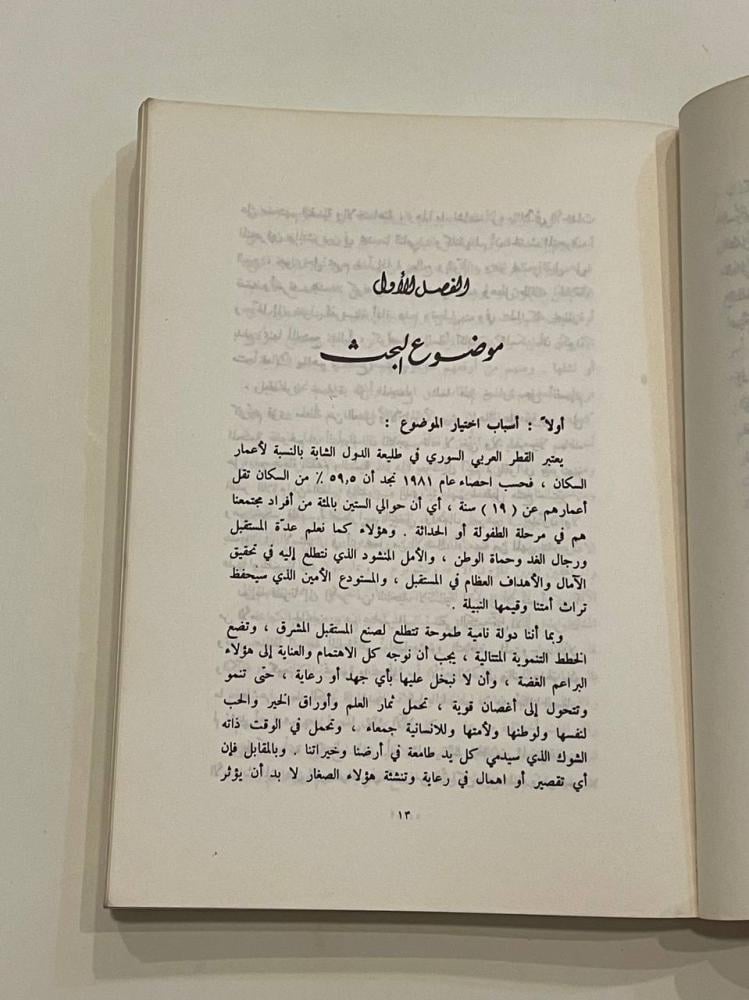 الفصل الأول
موضوع البحث
أولاً : أسباب اختيار الموضوع :
يعتبر القطر العربي السوري في طليعة الدول الشابة بالنسبة لأعمار
السكان ، فحسب احصاء عام ١٩٨١ نجد أن ٥٩,٥ ٪ من السكان تقل
أعمارهم عن ( ١٩ ) سنة ، أي أن حوالي الستين بالمئة من أفراد مجتمعنا
هم في مرحلة الطفولة أو الحداثة . وهؤلاء كما نعلم عدّة المستقبل
ورجال الغد وحماة الوطن ، والأمل المنشود الذي نتطلع إليه في تحقيق
الآمال والأهداف العظام في المستقبل ، والمستودع الأمين الذي سيحفظ
تراث أمتنا وقيمها النبيلة .
وبما أننا دولة نامية طموحة تتطلع لصنع المستقبل المشرق ، وتضع
الخطط التنموية المتتالية ، يجب أن نوجه كل الاهتمام والعناية إلى هؤلاء
البراعم الغضة ، وأن لا نبخل عليها بأي جهد أو رعاية ، حتّى تنمو
وتتحول إلى أغصان قوية ، تحمل ثمار العلم وأوراق الخير والحب
لنفسها ولوطنها ولأمتها وللانسانية جمعاء ، وتحمل في الوقت ذاته
الشوك الذي سيدمي كل يد طامعة في أرضنا وخيراتنا . وبالمقابل فإن
أي تقصير أو اهمال في رعاية وتنشئة هؤلاء الصغار لا بد أن يؤثر
١٣